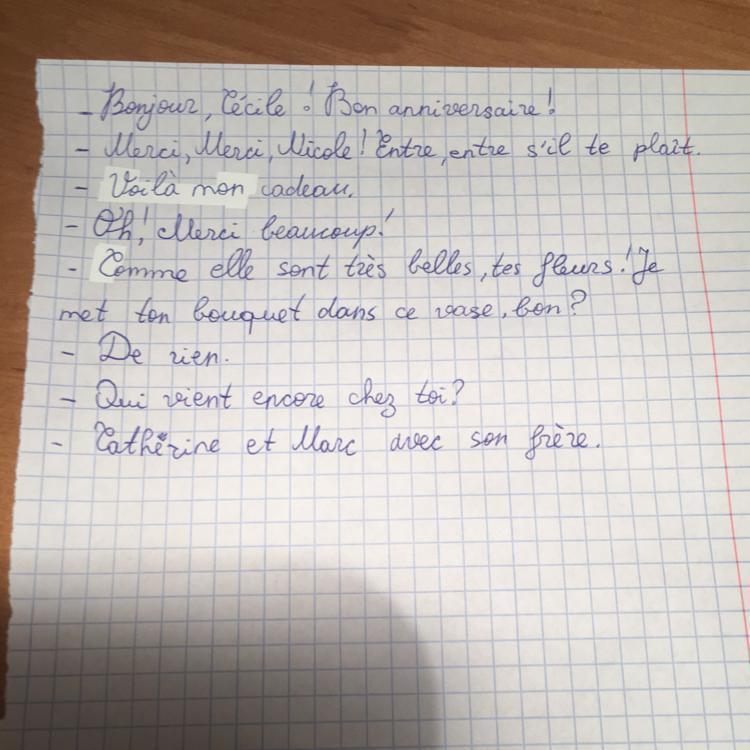 - Bonjour, Cécile! Bon anniversaire!
- Merci, Merci, Nicole! Entre, entre s'il te plaît.
- Voilà mon cadeau.
- Oh! Merci beaucoup!
- Comme elle sont très belles, tes fleurs! Je
met ton bouquet dans ce vase, bon?
- De rien.
- Qui vient encore chez toi?
- Cathérine et Marc avec son frère.